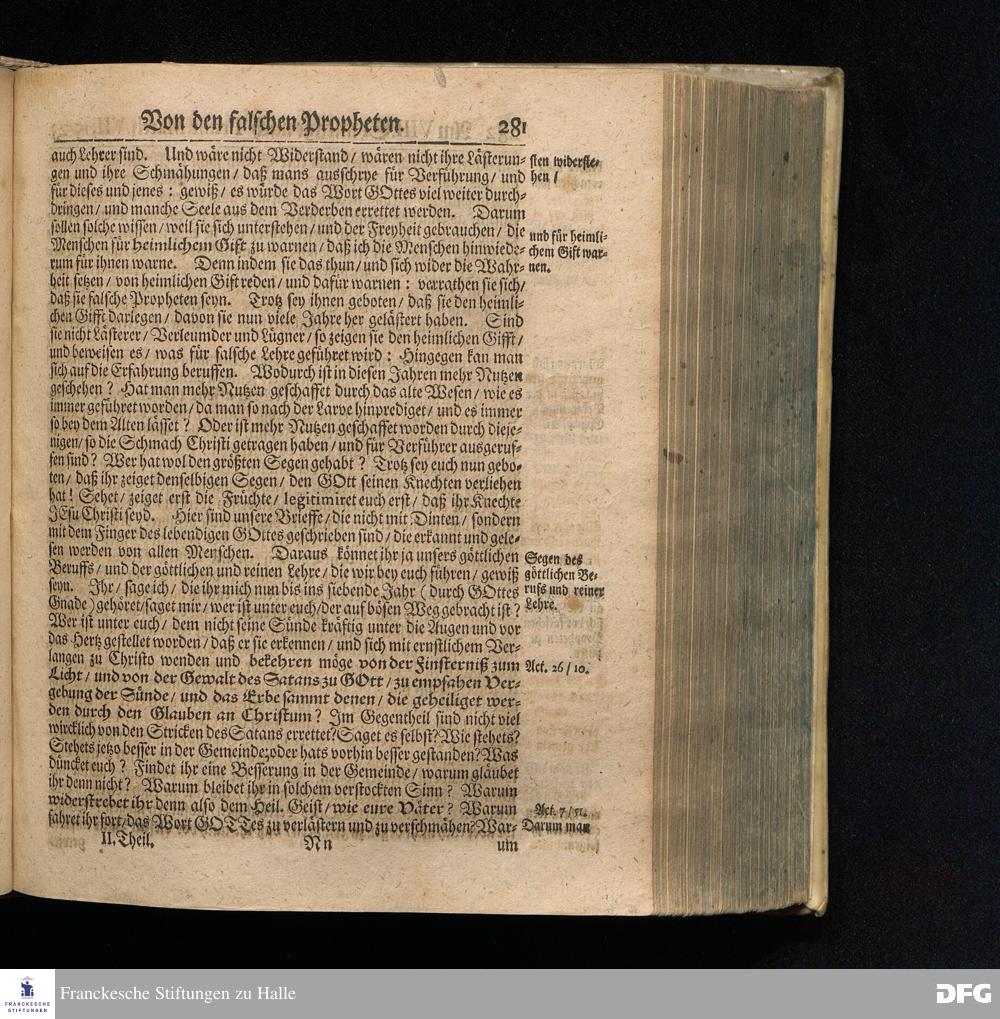 Von den falschen Propheten. 281
auch Lehrer sind. Und wäre nicht Widerstand / wären nicht ihre Lästerun-
gen und ihre Schmähungen / daß mans ausschrye für Verführung / und
für dieses und jenes : gewiß / es würde das Wort GOttes viel weiter durch-
dringen / und manche Seele aus dem Verderben errettet werden. Darum
sollen solche wissen / weil sie sich unterstehen / und der Freyheit gebrauchen / die
Menschen für heimlichem Gift zu warnen / daß ich die Menschen hinwiede-
rum für ihnen warne. Denn indem sie das thun / und sich wider die Wahr-
heit setzen / von heimlichen Gift reden / und dafür warnen : verrathen sie sich /
daß sie falsche Propheten seyn. Trotz sey ihnen geboten / daß sie den heimli-
chen Gifft darlegen / davon sie nun viele Jahre her gelästert haben. Sind
sie nicht Lästerer / Verleumder und Lügner / so zeigen sie den heimlichen Gifft /
und beweisen es / was für falsche Lehre geführet wird : Hingegen kan man
sich auf die Erfahrung beruffen. Wodurch ist in diesen Jahren mehr Nutzen
geschehen ? Hat man mehr Nutzen geschaffet durch das alte Wesen / wie es
immer geführet worden / da man so nach der Larve hinprediget / und es immer
so bey dem Alten lässet ? Oder ist mehr Nutzen geschaffet worden durch dieje-
nigen / so die Schmach Christi getragen haben / und für Verführer ausgeruf-
fen sind ? Wer hat wol den größten Segen gehabt ? Trotz sey euch nun gebo-
ten / daß ihr zeiget denselbigen Segen / den GOtt seinen Knechten verliehen
hat ! Sehet / zeiget erst die Früchte / legitimiret euch erst / daß ihr Knechte
JEsu Christi seyd. Hier sind unsere Brieffe / die nicht mit Dinten / sondern
mit dem Finger des lebendigen GOttes geschrieben sind / die erkannt und gele-
sen werden von allen Menschen. Daraus könnet ihr ja unsers göttlichen
Beruffs / und der göttlichen und reinen Lehre / die wir bey euch führen / gewiß
seyn. Ihr / sage ich / die ihr mich nun bis ins siebende Jahr ( durch GOttes
Gnade ) gehöret / saget mir / wer ist unter euch / der auf bösen Weg gebracht ist ?
Wer ist unter euch / dem nicht seine Sünde kräftig unter die Augen und vor
das Hertz gestellet worden / daß er sie erkennen / und sich mit ernstlichem Ver-
langen zu Christo wenden und bekehren möge von der Finsterniß zum
Licht / und von der Gewalt des Satans zu GOtt / zu empfahen Ver-
gebung der Sünde / und das Erbe sammt denen / die geheiliget wer-
den durch den Glauben an Christum ? Im Gegentheil sind nicht viel
wircklich von den Stricken des Satans errettet? Saget es selbst? Wie stehets?
Stehets jetzo besser in der Gemeinde; oder hats vorhin besser gestanden? Was
düncket euch ? Findet ihr eine Besserung in der Gemeinde / warum gläubet
ihr denn nicht ? Warum bleibet ihr in solchem verstockten Sinn ? Warum
widerstrebet ihr denn also dem Heil. Geist / wie eure Väter ? Warum
fahret ihr fort / das Wort GOTTes zu verlästern und zu verschmähen? War-
II. Theil. Nn um
sten widerste-
hen /
und für heimli-
chem Gift war-
nen.
Segen des
göttlichen Be-
ruffs und reiner
Lehre.
Act. 26 / 10.
Act. 7 / 51.
Darum man
Franckesche Stiftungen zu Halle
FRANCKESCHE
STIFTUNGEN
DFG